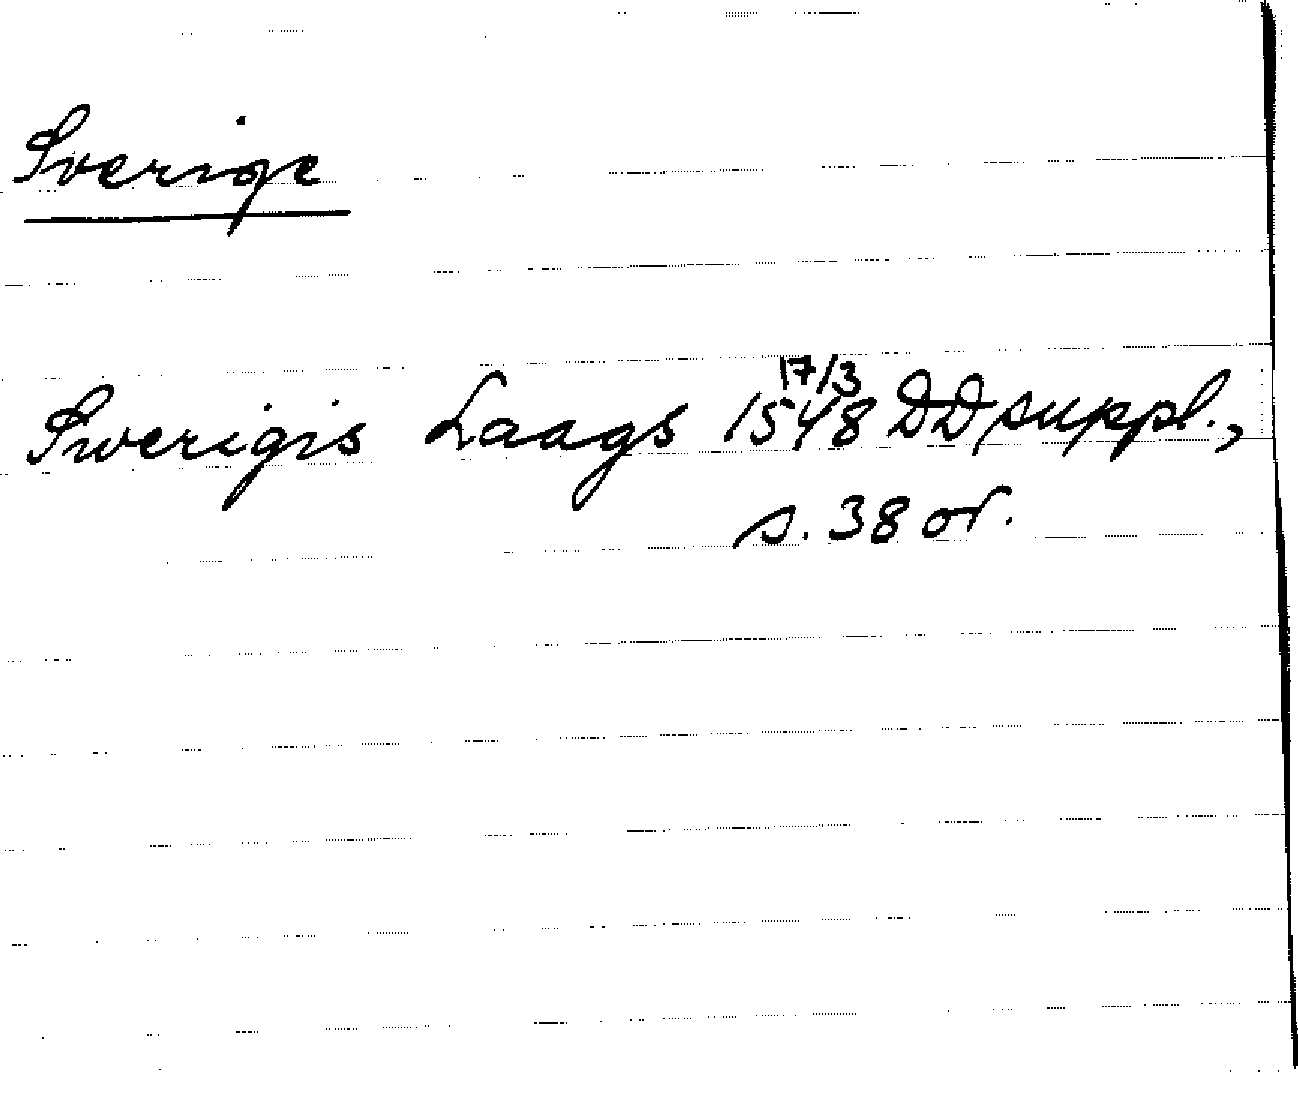 Sverige
Swerigis Laags 17/3 1548 DD suppl.,
s. 38 or.